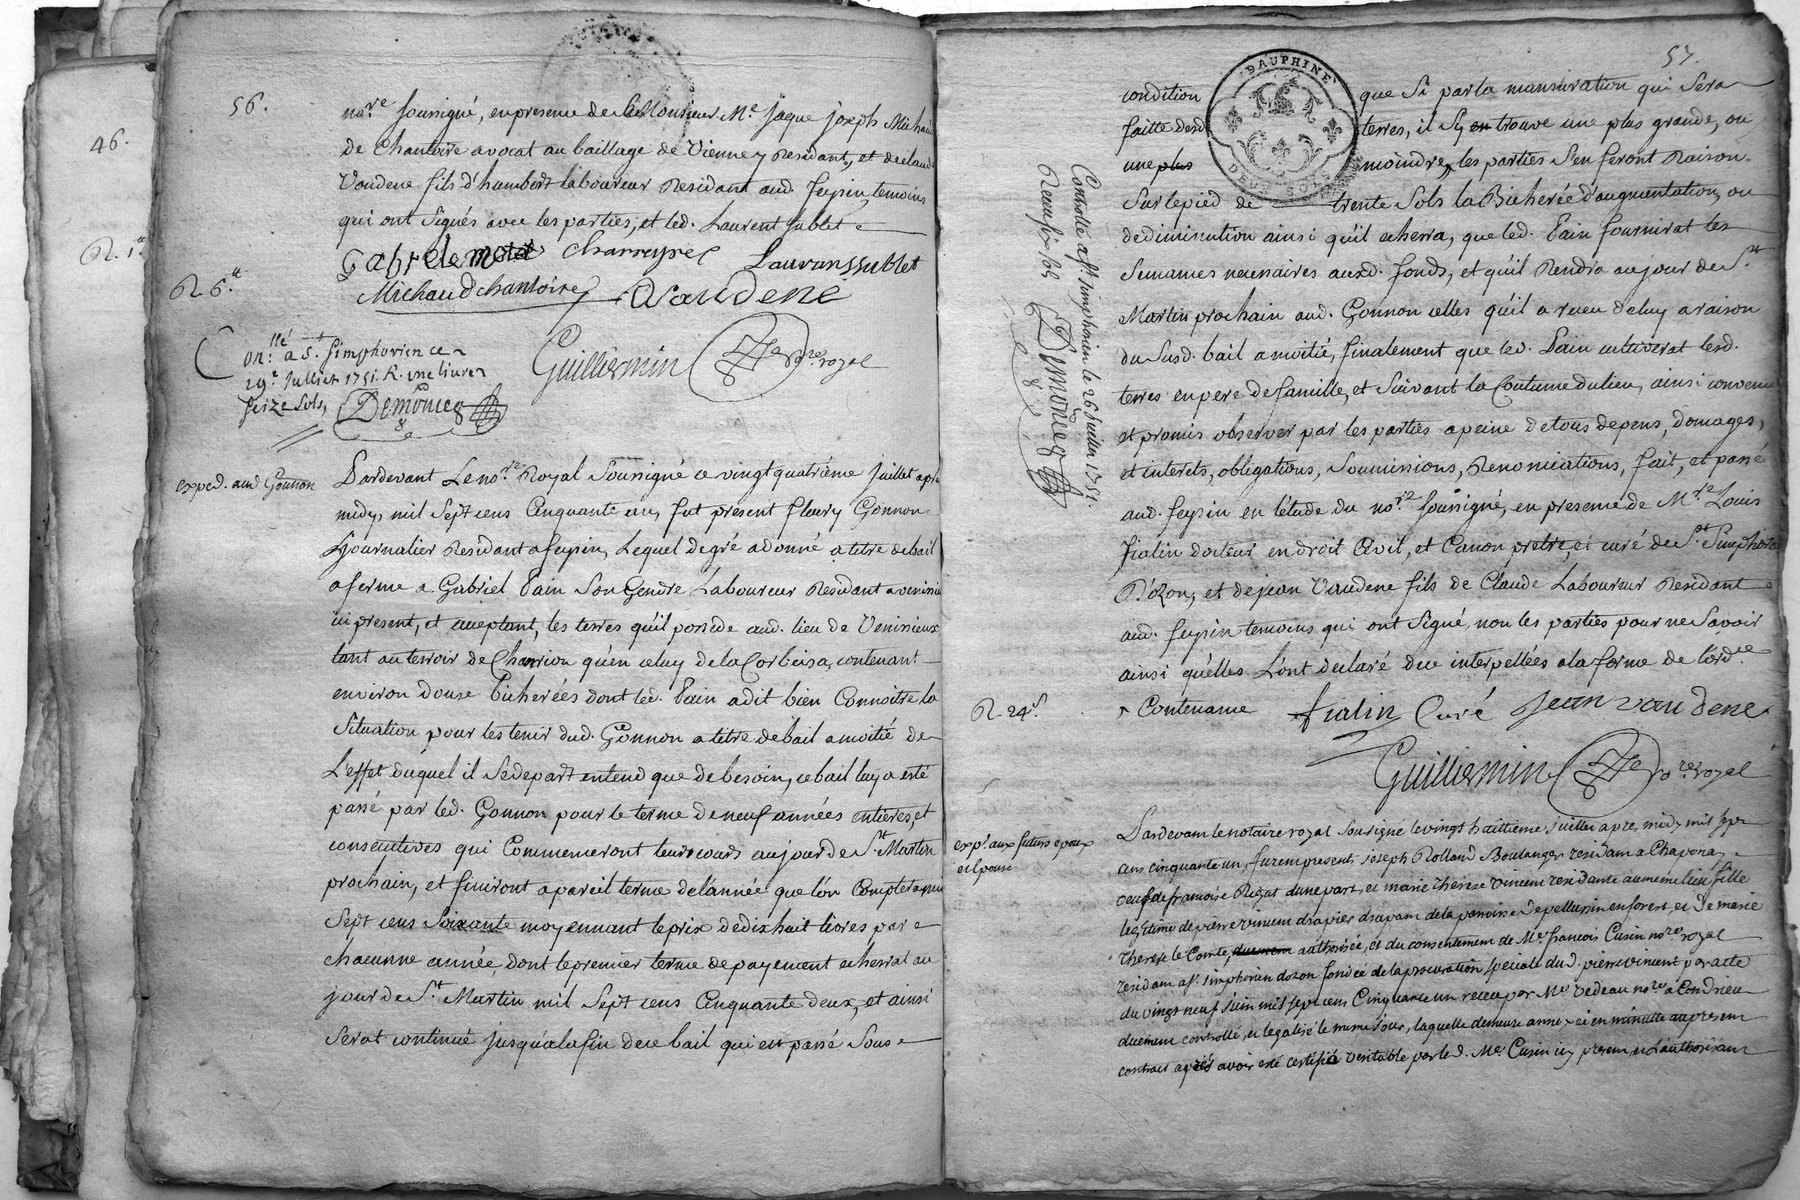 46.
R. 1.
56.
no.re soussigné, en presence de Monsieur M.e Jaque joseph Michau
de Chantoire avocat au baillage de Vienne y Residant, et de claude
Vaudene fils d'humbert laboureur Residant aud. feysin, temoins
qui ont Signés avec les parties, et led. Laurent sublet
Gabrele motet Charreyre Lauranssublet
Michaud chantoire C Vaudene
R. 6.tt
Con.llé a S.t Simphorien ce
29.e Juillet 1751. R. une livre
seize sols, Demonieg
Guilliermin no.re royal
exped. aud Gonnon
Pardevant Le no.re Royal Soussigné ce vingt quatrième juillet apr
midy, mil Sept cens Cinquante un, fut présent fleury Gonnon
journalier Residant a feysin, Lequel de gré a donné a titre de bail
a ferme a Gabriel Pain Son Gendre Laboureur Residant a venissieu
ici present, et acceptant, les terres qu'il possede aud. lieu de Venissieux
tant au terroir de Charrion qu'en celuy de la Corbeisa, contenant
environ douse Bicherées dont led. Pain a dit bien Connoître la
Situation pour les tenir dud. Gonnon a titre de bail a moitié de
L'effet duquel il Se depart entend que de besoin, ce bail luy a esté
passé par led. Gonnon pour le terme de neuf années entières, et
consecutives qui Commenceront leurs cours au jour de S.t Martin
prochain, et finiront a pareil terme de l'année que l'on Comptera mil
Sept cens Soixante moyennant le prix de dix huit livres par
chacunne année, dont le premier terme de payement echerrat au
jour de S.t Martin mil Sept cens Cinquante deux, et ainsi
Serat continué jusqu'a la fin de ce bail qui est passé Sous
57.
DAUPHINE
DEUX SOLS
condition que Si par la mansuration qui Sera
faitte desd terres, il Sy en trouve une plus grande, ou
une plus moindre, les parties S'en feront Raison
Sur le pied de trente Sols la Bicherée d'augmentation, ou
de diminution ainsi qu'il echerra, que led. Pain fournirat les
Semances necessaires auxd. fonds, et qu'il Rendra au jour de S.t
Martin prochain aud. Gonnon celles qu'il a receu de luy a raison
du Susd. bail a moitié, finalement que led. Pain cultiverat lesd.
terres en pere de famille, et Suivant la Coutume du lieu, ainsi convenu
et promis observer par les parties a peine de tous depens, domages,
et interets, obligations, Soumissions, Renonciations, fait, et passé
aud. feysin en l'étude du no.re soussigné, en presence de M.re Louis
fialin docteur en droit Civil, et Canon prêtre, et curé de S.t Simphorien
D'ozon, et de jean Vaudene fils de Claude Laboureur Residant
aud. feysin temoins qui ont Signé, non les parties pour ne Savoir
ainsi qu'elles L'ont declaré de ce interpellées a la forme de l'ord.ce
Controllé a S.t Simphorien le 26 Juillet 1751.
Receu six sols Demonieg
R. 24.s
Contenance fialin Curé Jean vaudene
Guilliermin no.re royal
exp.é aux futurs epoux
et epouse
Pardevant le notaire royal soussigné le vingt huitieme juillet apres midy mil sept
cens cinquante un, furent presents joseph Rolland Boulanger residant a Chaponay
veuf de francoise Rigat d'une part, et marie therese vincent residante au meme lieu fille
legitime de pierre vincent drapier drapant de la parroisse de pellussin en forest, et de marie
therese le Comte, duement authorisée, et du consentement de M.e francois Cusin no.re royal
residant a S.t simphorien dozon fondé de la procuration speciale dud. pierre vincent par acte
du vingt neuf juin mil sept cens Cinquante un receu par M.e Vedeau no.re a Condrieu
duement controllé, et legalisé le meme jour, laquelle demeure annexée en minutte au present
contrat après avoir eté certifié veritable par led. M.e Cusin icy present et L'authorisant